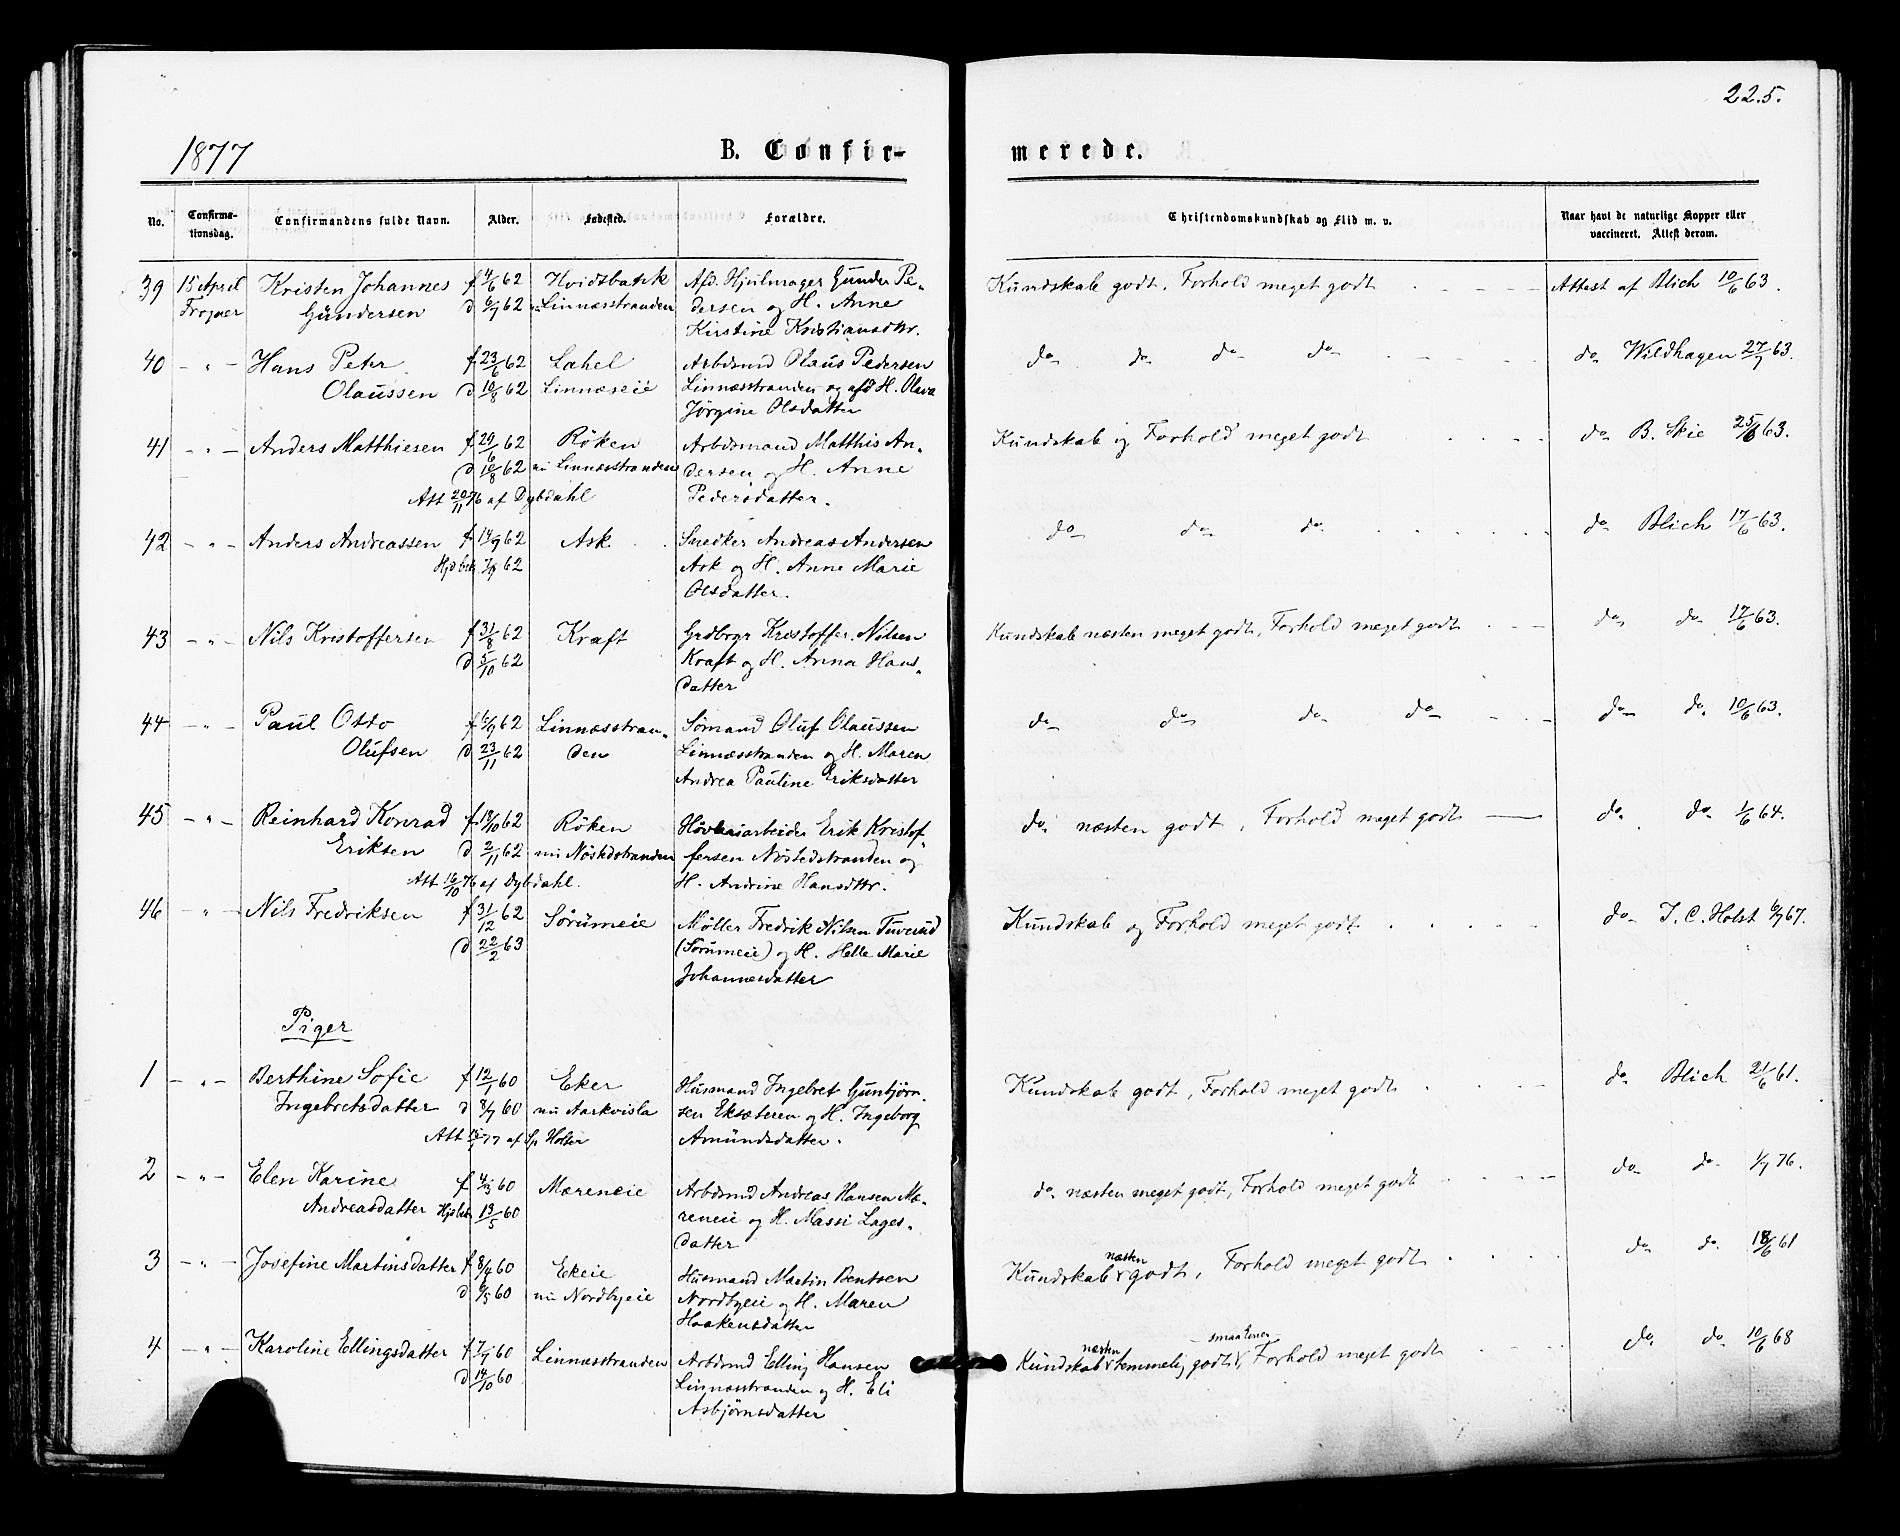 22.5.
1877 B. Confir- merede.
No. Confirma- Confirmandens fulde Navn. Alder. Fødested. Forældre. Christendomskundskab og Flid m. v. Naar havt de naturlige Kopper eller
tionsdag. vaccineret. Attest derom.
39 15 April Kristen Johannes f 4/6 62 Hvidtbatsk Afd. Hjulmager Gunder Pe- Kundskab godt, Forhold meget godt Attest af Blich 10/6 63.
Frogner Gundersen d 6/7 62 nu Linnæsstranden dersen og H. Anne
Kirstine Kristiansdttr.
40 - " - Hans Peter f 23/6 62 Lahel Arbdsmd Olaus Pedersen do do do do do Wildhagen 27/7 63.
Olaussen d 10/8 62 Linnæseie Linnæsstranden og afd H. Olava
Jørgine Olsdatter
41 - " - Anders Matthiesen f 29/6 62 Röken Arbdsmand Matthis An- Kundskab og Forhold meget godt do B. Skie 25/6 63.
d 10/8 62 nu Linnæsstranden dersen og H. Anne
Att 20/11 76 af Dybdahl Pedersdatter.
42 - " - Anders Andreassen f 14/9 62 Ask Snedker Andreas Andersen do do do do Blich 17/6 63.
Hjdbt 62 Ask og H. Anne Marie
Olsdatter.
43 - " - Nils Kristoffersen f 31/8 62 Kraft Grdbrgr Kristoffer Nilsen Kundskab næsten meget godt, Forhold meget godt do do 17/6 63.
d 5/10 62 Kraft og H. Anna Hans-
datter
44 - " - Paul Otto f 6/9 62 Linnæsstran- Sømand Oluf Olaussen do do do do do do 10/6 63.
Olufsen d 23/11 62 den Linnæsstranden og H. Maren
Andrea Pauline Eriksdatter
45 - " - Reinhard Konrad f 18/10 62 Röken Hövleriarbeider Erik Kristof- do næsten godt, Forhold meget godt do do 1/6 64.
Eriksen d 2/11 62 nu Nöstedstranden fersen Nöstedstranden og
Att 16/10 76 af Dybdahl. H. Andrine Hansdttr.
46 - " - Nils Fredriksen f 31/12 62 Sörumeie Møller Fredrik Nilsen Tuverud Kundskab og Forhold meget godt do J. C. Holst 6/7 67.
d 22/2 63 (Sörumeie) og H. Helle Marie
Johannesdatter
Piger
1 - " - Berthine Sofie f 12/1 60 Eker Husmand Ingebret Gunbjörn- Kundskab godt, Forhold meget godt do Blich 21/6 61.
Ingebretsdatter d 8/7 60 nu Aarkvisla sen Eksæteren og H. Ingeborg
Att 77 af Sp Holter Amundsdatter.
2 - " - Elen Karine f 4/3 60 Mæreneie Arbdsmd Andreas Hansen Mæ- do næsten meget godt, Forhold meget godt do do 1/7 76.
Andreasdatter Hjdbt 13/5 60 reneie og H. Massi Lages-
datter
3 - " - Josefine Martinsdatter f 8/4 60 Ekeie Husmand Martin Bentsen Kundskab næsten godt, Forhold meget godt do do 18/6 61
d 6/5 60 nu Nordbyeie Nordbyeie og H. Maren
Haakensdatter
4 - " - Karoline Ellingsdatter f 7/7 60 Linnæsstranden Arbdsmd Elling Hansen Kundskab næsten temmelig godt, smaa Evner Forhold meget godt do do 10/6 68
d 14/10 60 Linnæsstranden og H. Eli
Asbjörnsdatter